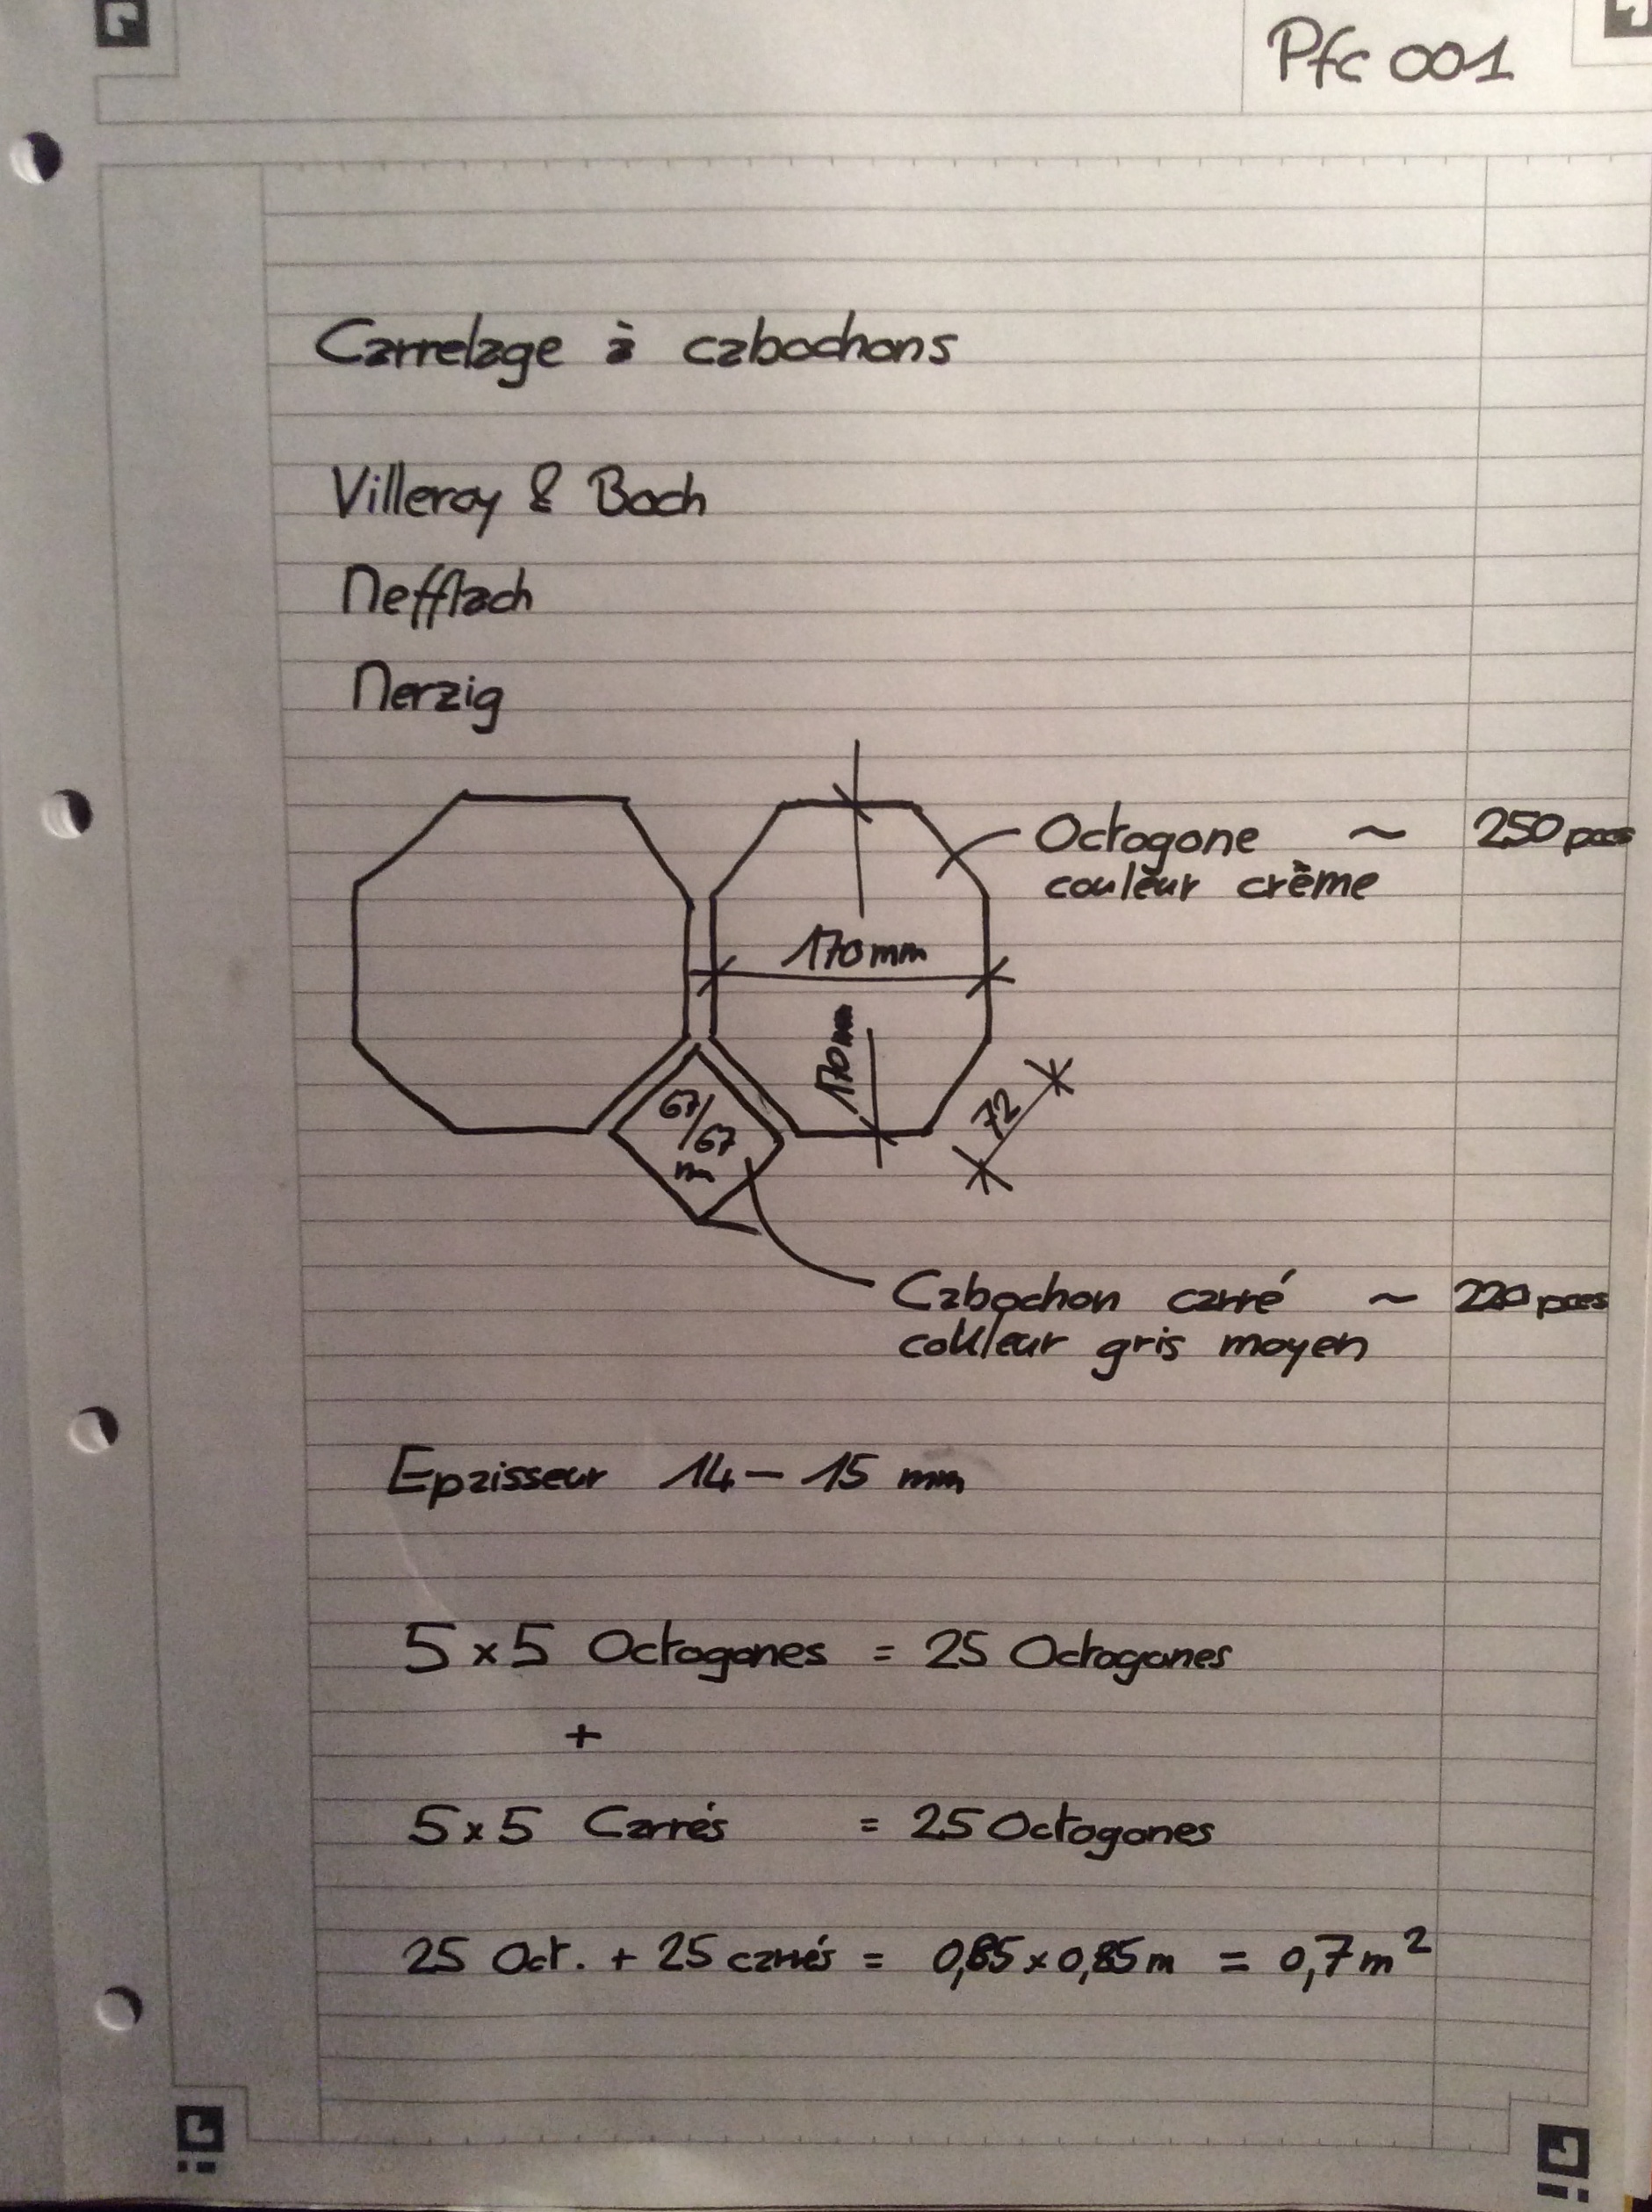 Pfc 001
Carrelage à cabochons
Villeroy & Boch
Mefflach
Merzig
Octogone ~ 250 pces
couleur crème
170 mm
170 mm
72
67/67
mm
Cabochon carré ~ 220 pces
couleur gris moyen
Epaisseur 14 – 15 mm
5 x 5 Octogones = 25 Octogones
+
5 x 5 Carrés = 25 Octogones
25 Oct. + 25 carrés = 0,85 x 0,85 m = 0,7 m²